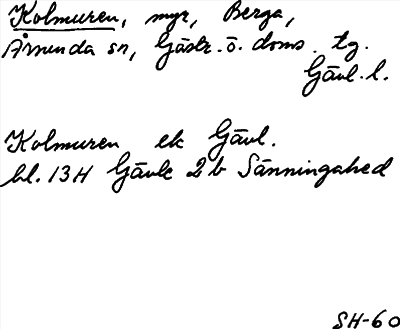 Kolmuren, myr, Berga,
Årsunda sn, Gästr. ö. doms. tg.
Gävl. l.
Kolmuren ek Gävl.
bl. 13H Gävle 2b Sänningahed
SH-60